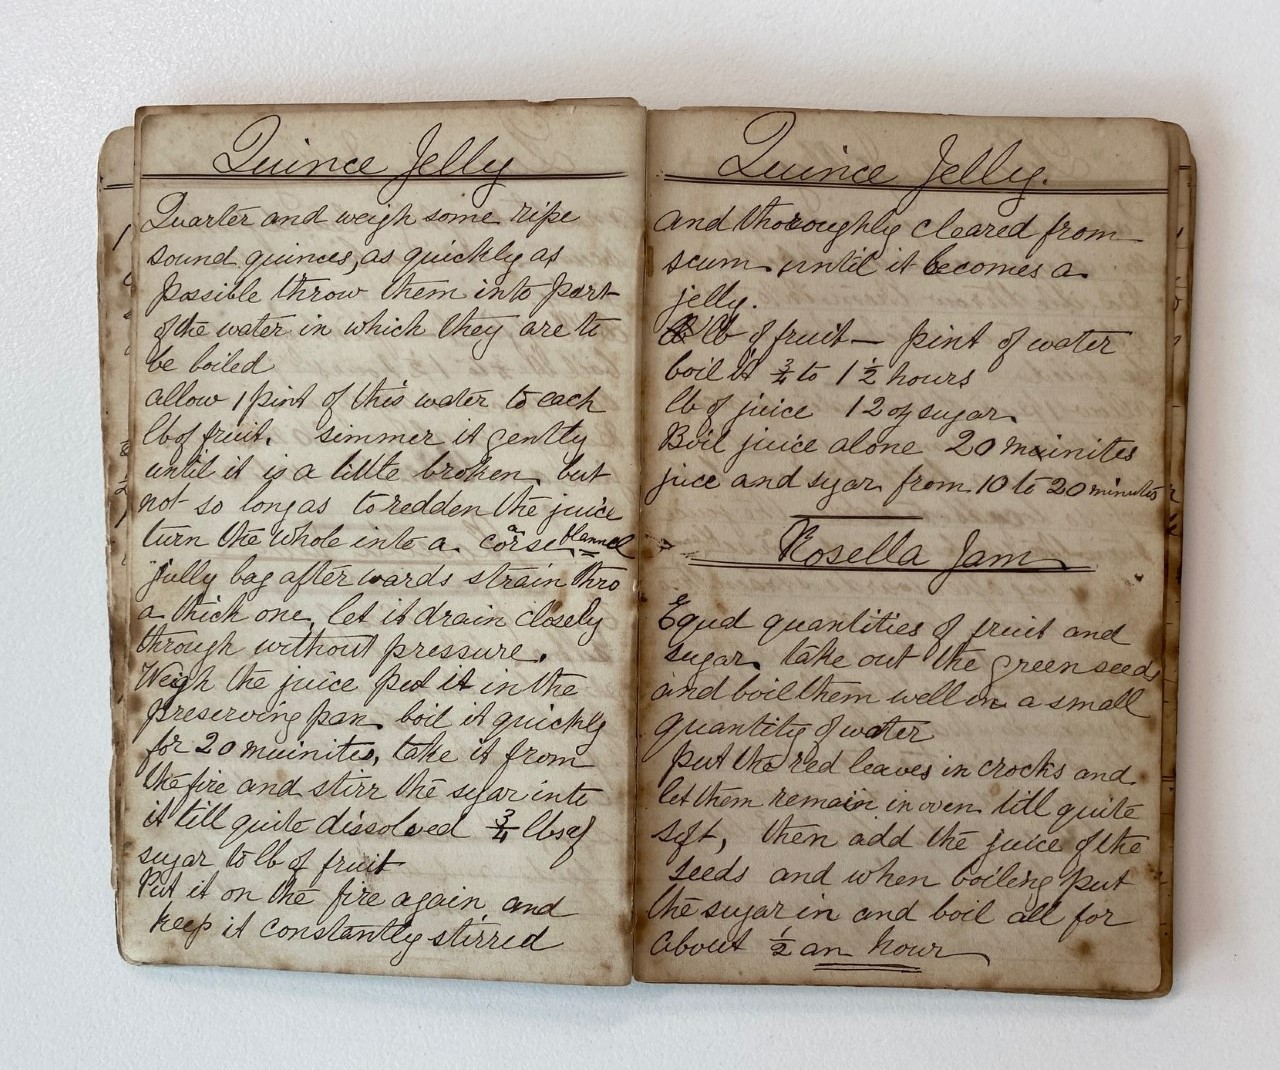 Quince Jelly
Quarter and weigh some ripe
sound quinces, as quickly as
possible throw them into part
of the water in which they are to
be boiled
allow 1 pint of this water to each
lb of fruit. simmer it gently
until it is a little broken but
not so long as to redden the juice
turn the whole into a coarse flannel
jully bag after wards strain thro
a thick one, let it drain closely
through without pressure.
Weigh the juice put it in the
preserving pan boil it quickly
for 20 muinites, take it from
the fire and stirr the sugar into
it till quite dissolved 3/4 lbs of
sugar to lb of fruit
Put it on the fire again and
keep it constantly stirred
Quince Jelly.
and thoroughly cleared from
scum until it becomes a
jelly.
lb of fruit — pint of water
boil it 3/4 to 1 1/2 hours
lb of juice 12 oz sugar
Boil juice alone 20 muinites
juce and sugar from 10 to 20 minutes
Rosella Jam
Equal quantities of fruit and
sugar. take out the green seeds
and boil them well in a small
quantity of water
put the red leaves in crocks and
let them remain in oven till quite
soft, then add the juice of the
seeds and when boiling put
the sugar in and boil all for
about 1/2 an hour